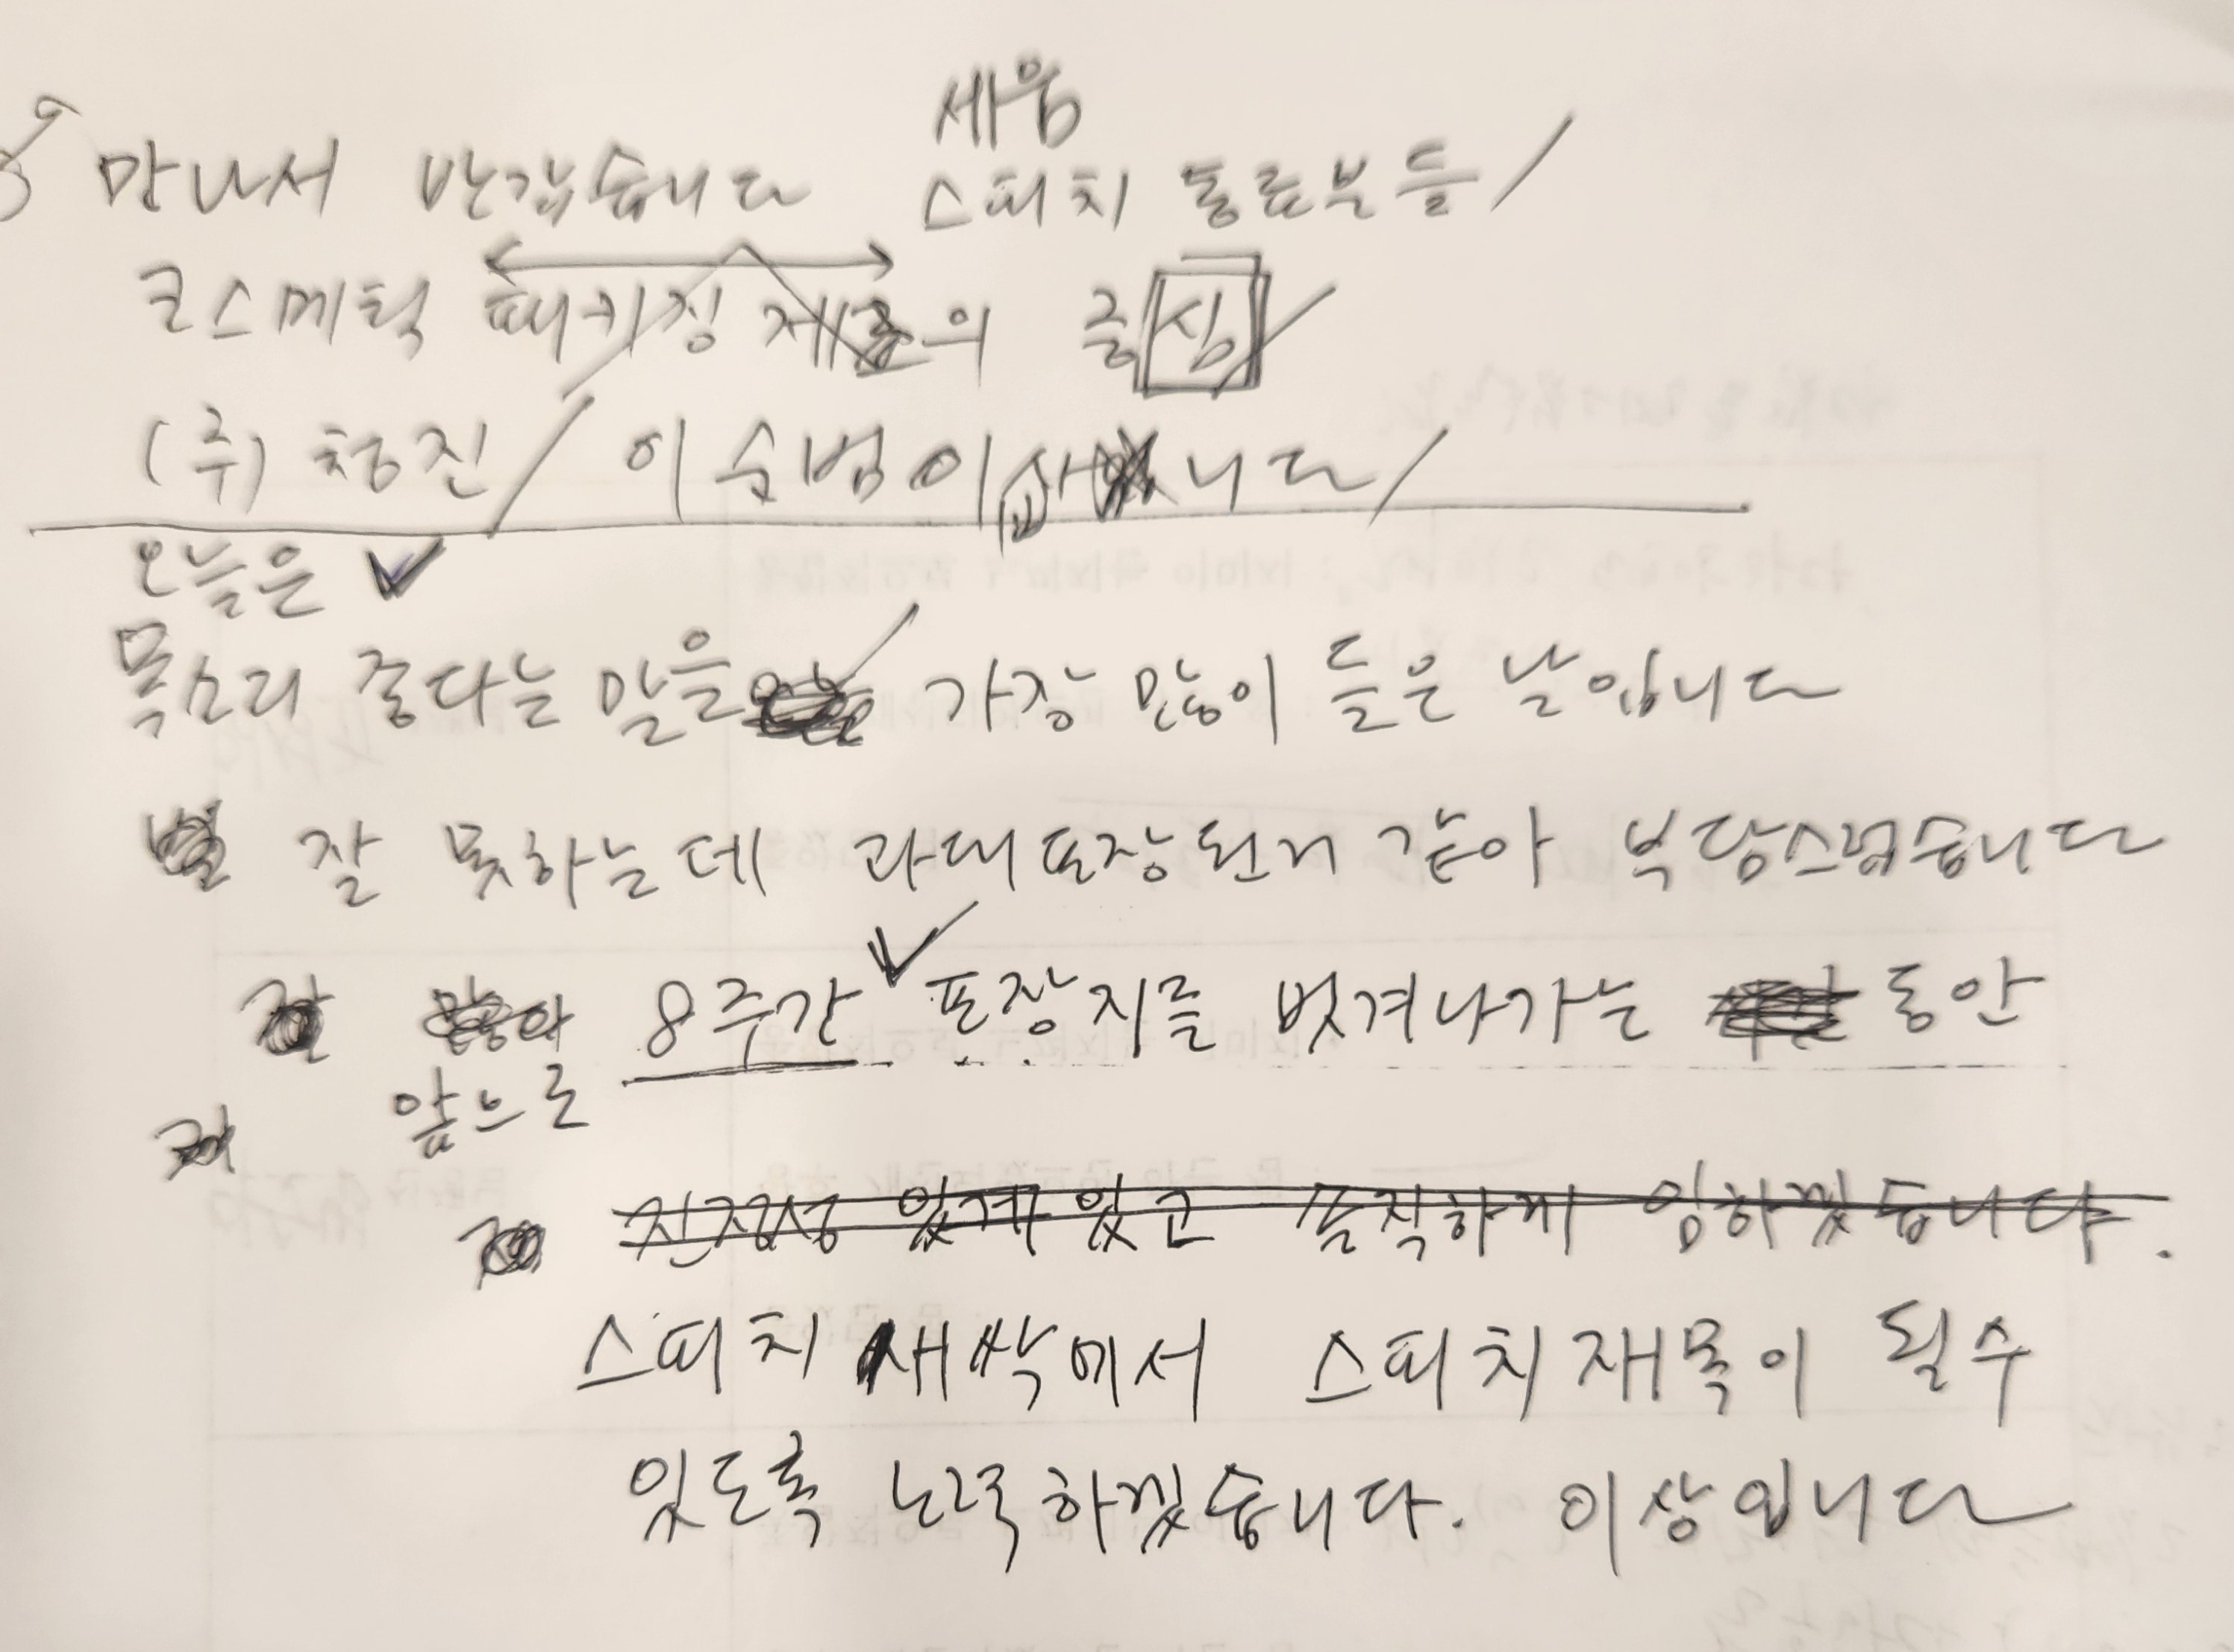 세움
만나서 반갑습니다 스피치 동료분들/
코스메틱 패키징 제조의 중심/
(주) 청진/ 이수범이사입니다/
오늘은 ✓
목소리 좋다는 말을 가장 많이 들은 날입니다
잘 못하는데 과대포장된거 같아 부담스럽습니다
8주간 ✓ 포장지를 벗겨나가는 동안
앞으로
진정성 있게 있고 솔직하게 임하겠습니다.
스피치 새싹에서 스피치재목이 될수
있도록 노력하겠습니다. 이상입니다